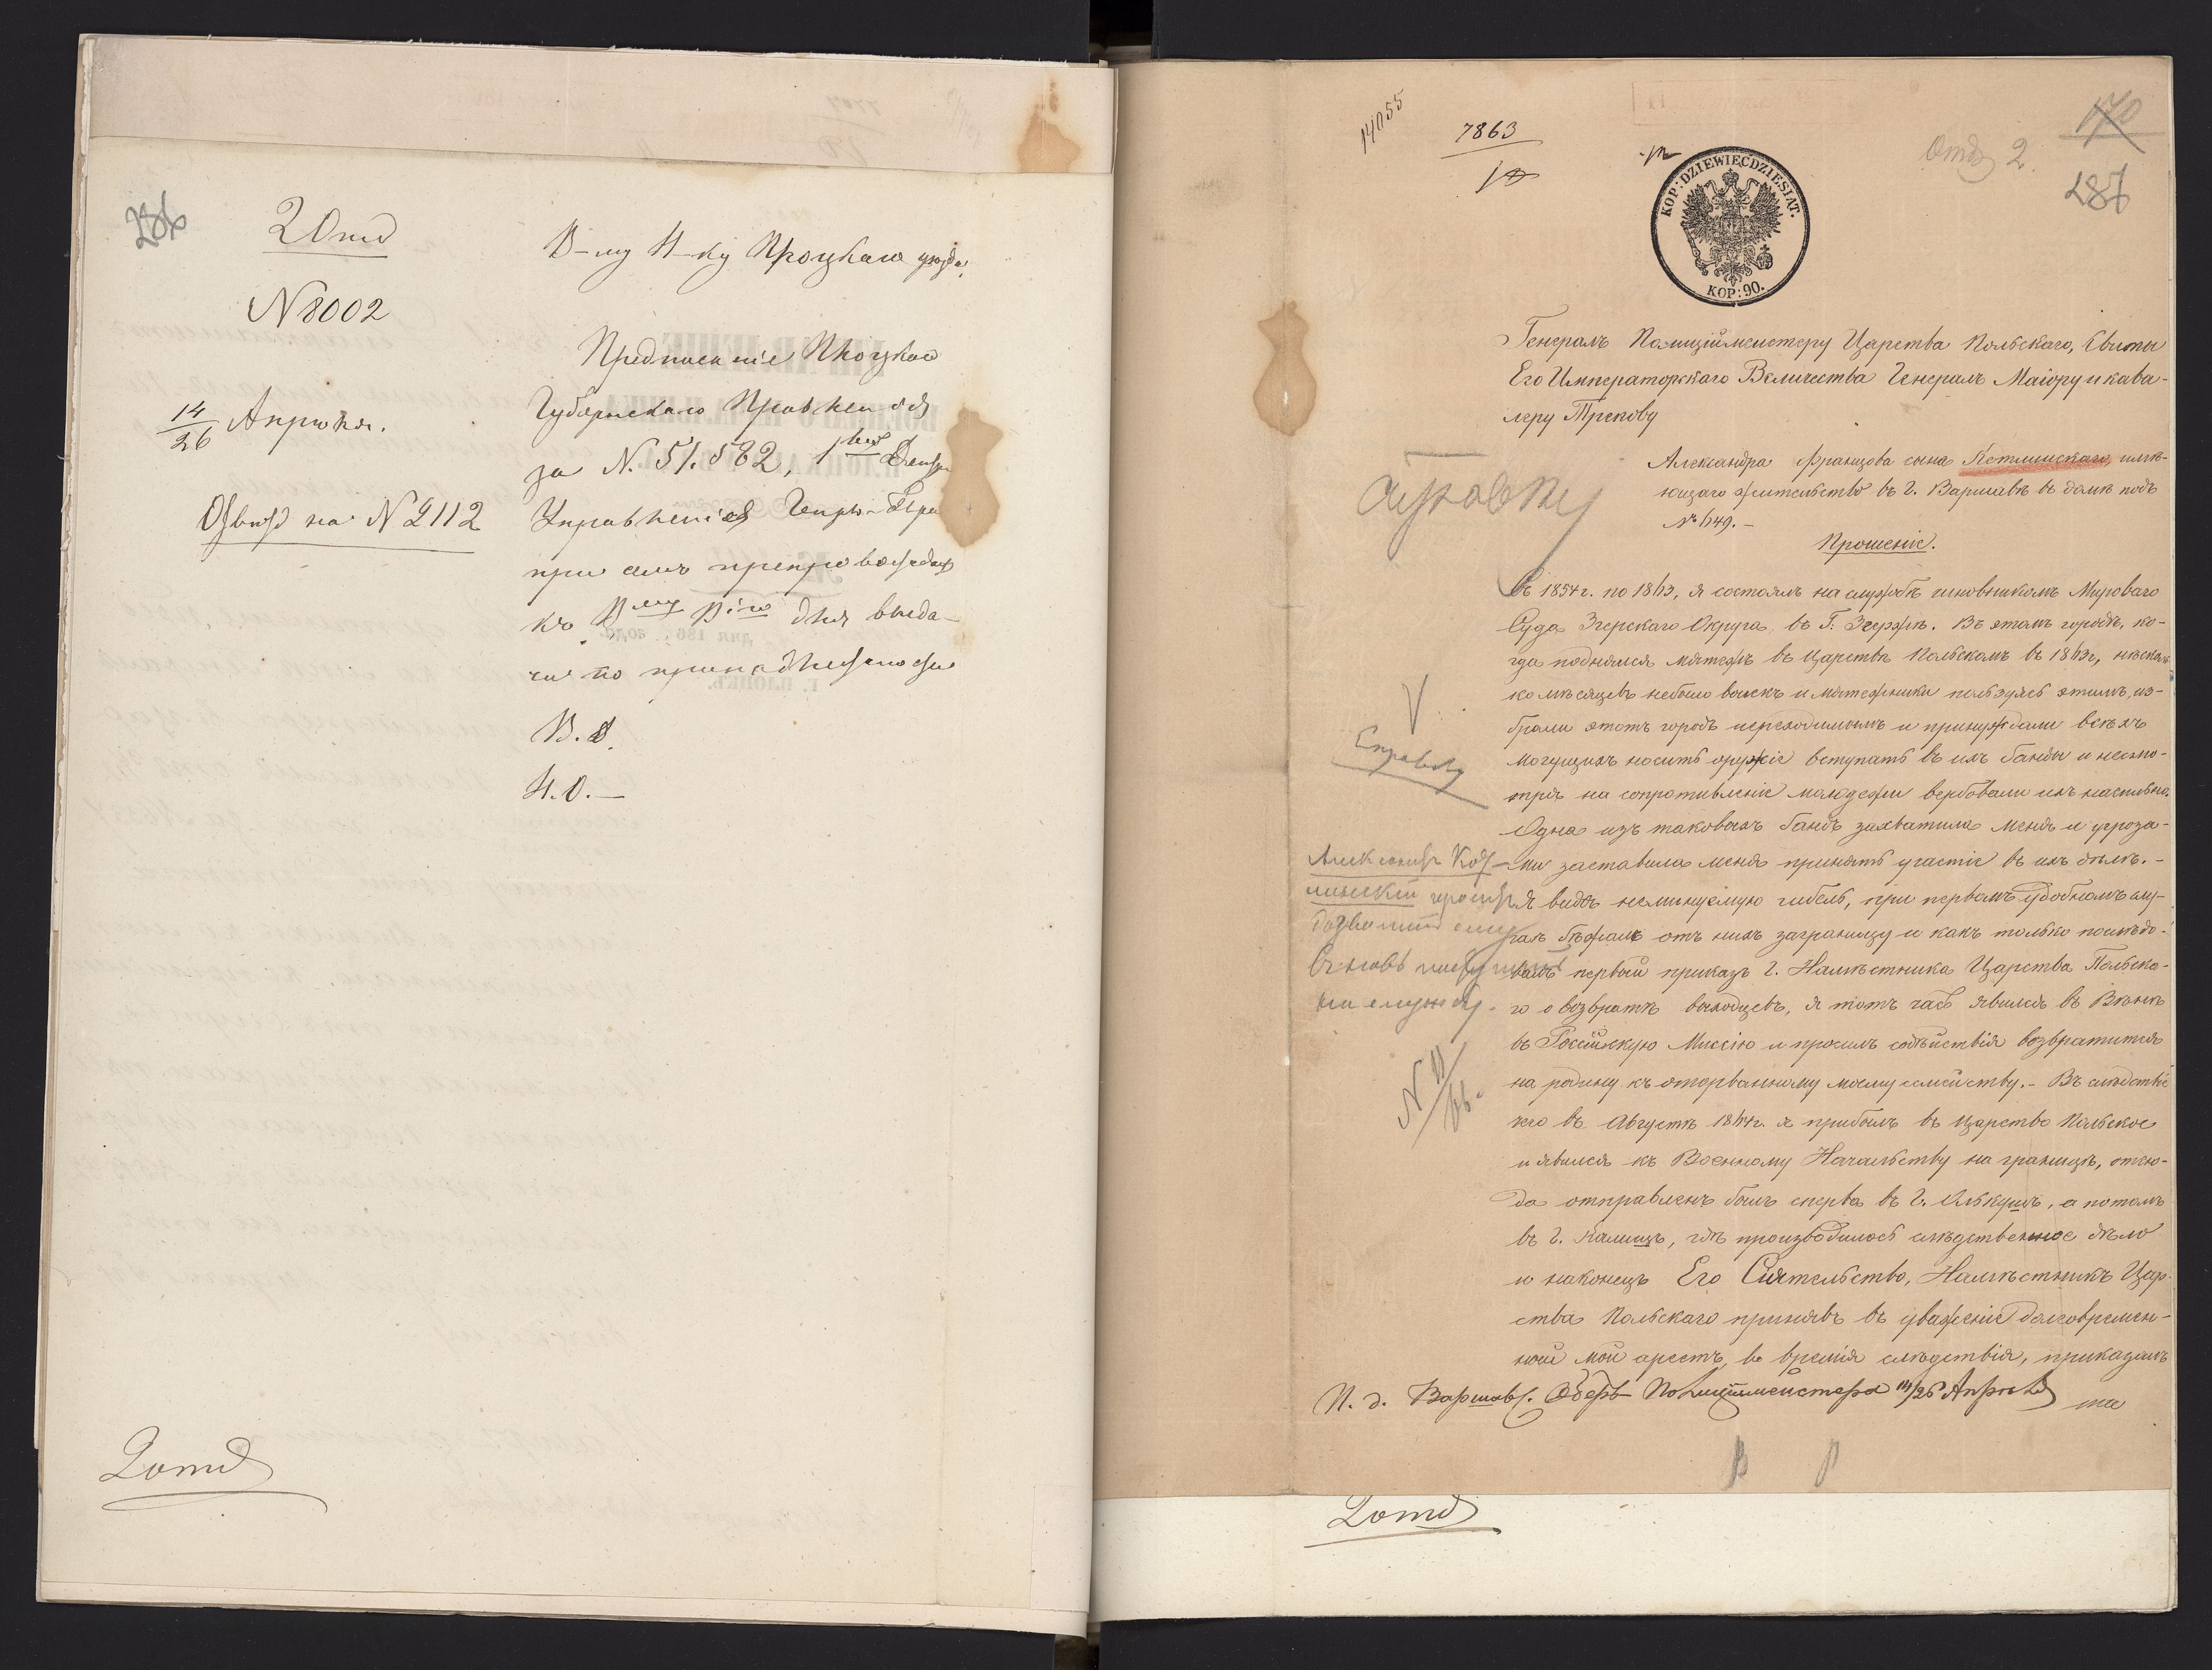 286
2 Отд
N 8002
14/26 Апрѣля.
Отвѣт на N 2112
В-му Н-ку Плоцкаго уѣзда.
Предписаніе Плоцкаго
Губернскаго Правленія
за N. 51.582,
Управленія
при семъ препровождаю
къ В му В ію для выда-
чи по принадлежности
В. Н.
Н. О.—
2 отд
14055
7863
Отд 2.
170
287
KOP: DZIEWIĘCDZIESIĄT.
KOP: 90.
Генералъ Полиціймейстеру Царства Польскаго, Свиты
Его Императорскаго Величества Генералъ Маіору и кава-
леру Трепову
Александра Францова сына Кетлинскаго, имѣ-
ющаго жительство въ г. Варшавѣ въ домѣ подъ
№ 649.-
Прошеніе.
Въ 1854 г. по 1863, я состоялъ на службѣ чиновникомъ Мироваго
Суда Згерскаго Округа въ Г. Згержѣ. Въ этомъ городѣ, ко-
гда поднялся мятежъ въ Царствѣ Польскомъ въ 1863 г, нѣсколь-
ко мѣсяцевъ небыло войскъ и мятежники пользуясь этимъ, из-
брали этотъ городъ переходимымъ и принуждали всѣхъ
могущихъ носить оружіе вступать въ ихъ банды и несмо-
тря на сопротивленіе молодежи вербовали ихъ насильно.
Одна изъ таковыхъ бандъ захватила меня и угроза-
ми заставила меня принять участіе въ ихъ дѣлѣ.-
Я видя неминуемую гибель, при первомъ удобномъ слу-
чаѣ бѣжалъ отъ нихъ заграницу и какъ только послѣдо-
валъ первый приказъ Г. Намѣстника Царства Польска-
го о возвратѣ выходцевъ, я тотъ часъ явился въ Вѣнѣ
въ Россійскую Миссію и просилъ содѣйствія возвратится
на родину къ оторванному моему семейству.- Въ слѣдствіе
чего въ Августѣ 1864 г. я прибылъ въ Царство Польское
и явился къ Военному Начальству на границѣ, отку-
да отправленъ былъ сперва въ г. Олькушъ, а потомъ
въ г. Калишъ, гдѣ производилось слѣдственное дѣло
и наконецъ Его Сіятельство, Намѣстникъ Цар-
ства Польскаго принявъ въ уваженіе долговремен-
ной мой арестъ, во время слѣдствія, приказалъ
Справку
Александръ Кет-
линскій проситъ
дозволить ему
вновь поступить
на службу.
П. д. Варшавс. Оберъ Полицмейстера 14/26 Апрѣля
2 отд